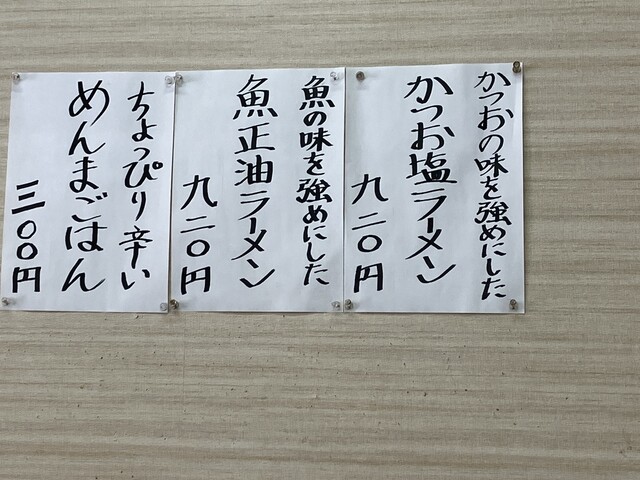 かつおの味を強めにした
かつお塩ラーメン
九二〇円
魚の味を強めにした
魚正油ラーメン
九二〇円
ちょっぴり辛い
めんまごはん
三〇〇円